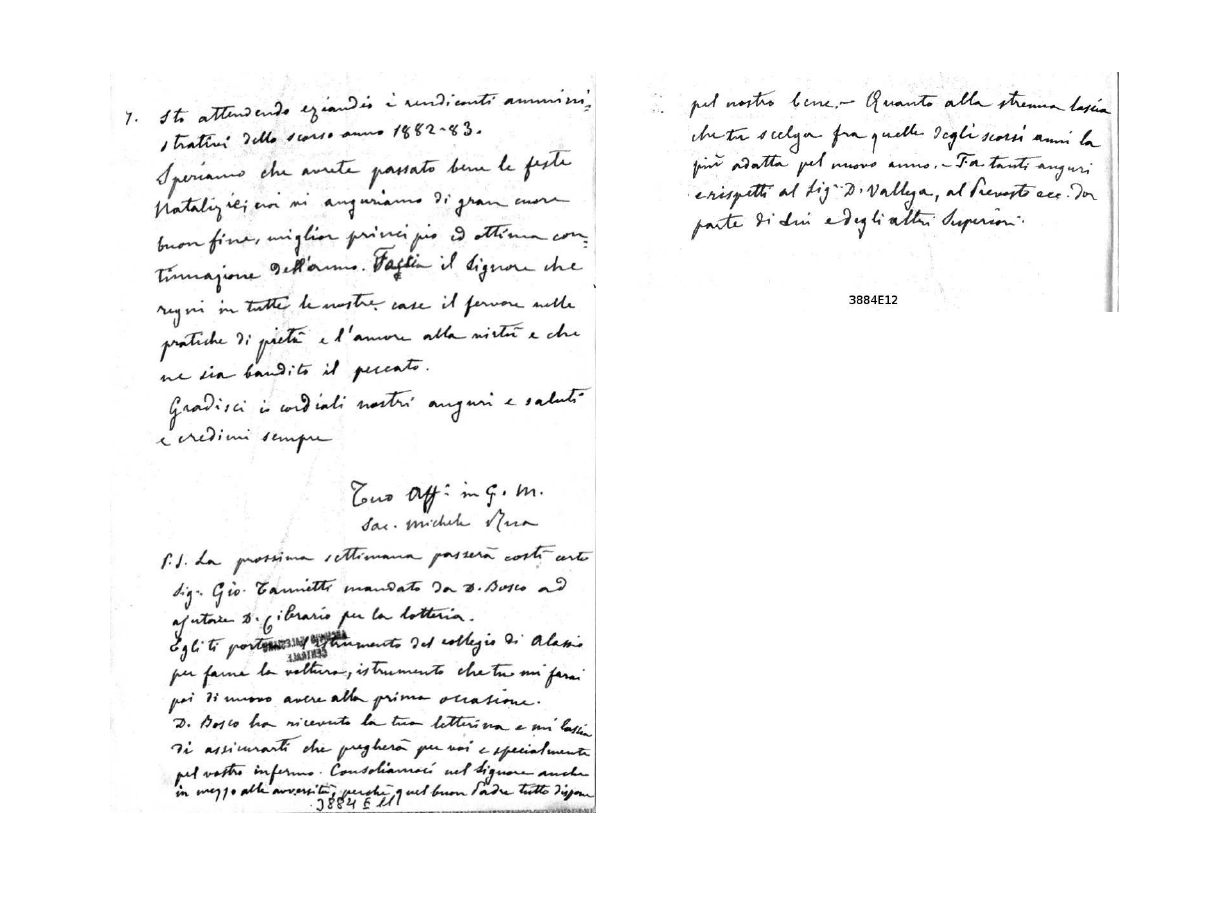 7. Sto attendendo eziandio i rendiconti ammini=
strativi dello scorso anno 1882-83.
Speriamo che avrete passato bene le feste
Natalizie; noi vi auguriamo di gran cuore
buon fine, miglior principio ed ottima con=
tinuazione dell'anno. Faccia il Signore che
regni in tutte le nostre case il fervore nelle
pratiche di pietà e l'amore alla virtù e che
ne sia bandito il peccato.
Gradisci i cordiali nostri auguri e saluti
e credimi sempre
Tuo Aff.º in G. M.
Sac. Michele Rua
P.S. La prossima settimana passerà costì certo
Sig. Gio. mandato da D. Bosco ad
ajutare D. Cibrario per la lotteria.
Egli ti porterà l'istrumento del collegio di Alassio
per farne la voltura, istrumento che tu mi farai
poi di nuovo avere alla prima occasione.
D. Bosco ha ricevuto la tua letterina e mi lascia
di assicurarti che pregherà per voi e specialmente
pel vostro infermo. Consoliamoci nel Signore anche
in mezzo alle avversità, perché quel buon Padre tutto dispone
3884 E 11
ARCHIVIO SALESIANO
CENTRALE
pel nostro bene. - Quanto alla strenna lascia
che tu scelga fra quelle degli scorsi anni la
più adatta pel nuovo anno. - Fa tanti auguri
e rispetti al Sig. D. Vallega, al Prevosto ecc. da
parte di Lui e degli altri Superiori.
3884E12